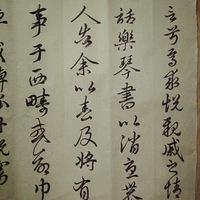 言兮焉求悅親戚之情
話樂琴書以消憂農
人告余以春及將有
事于西疇或命巾